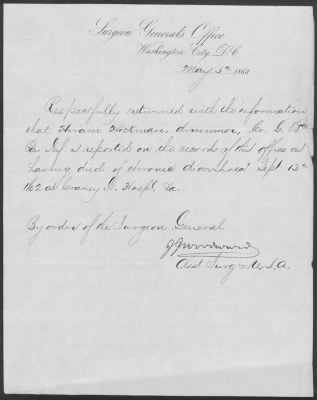 Surgeon General's Office
Washington City, D.C.
May 5th 1863
Respectfully returned with the information
that Hiram Hockman, drummer, Co. G. 85th
Pa Inf is reported on the records of this office as
having died of chronic diarrhoea Sept 13th
1862 at Craney Is. Hospl. Va.
By order of the Surgeon General
J J Woodward
Asst Surg U.S.A.